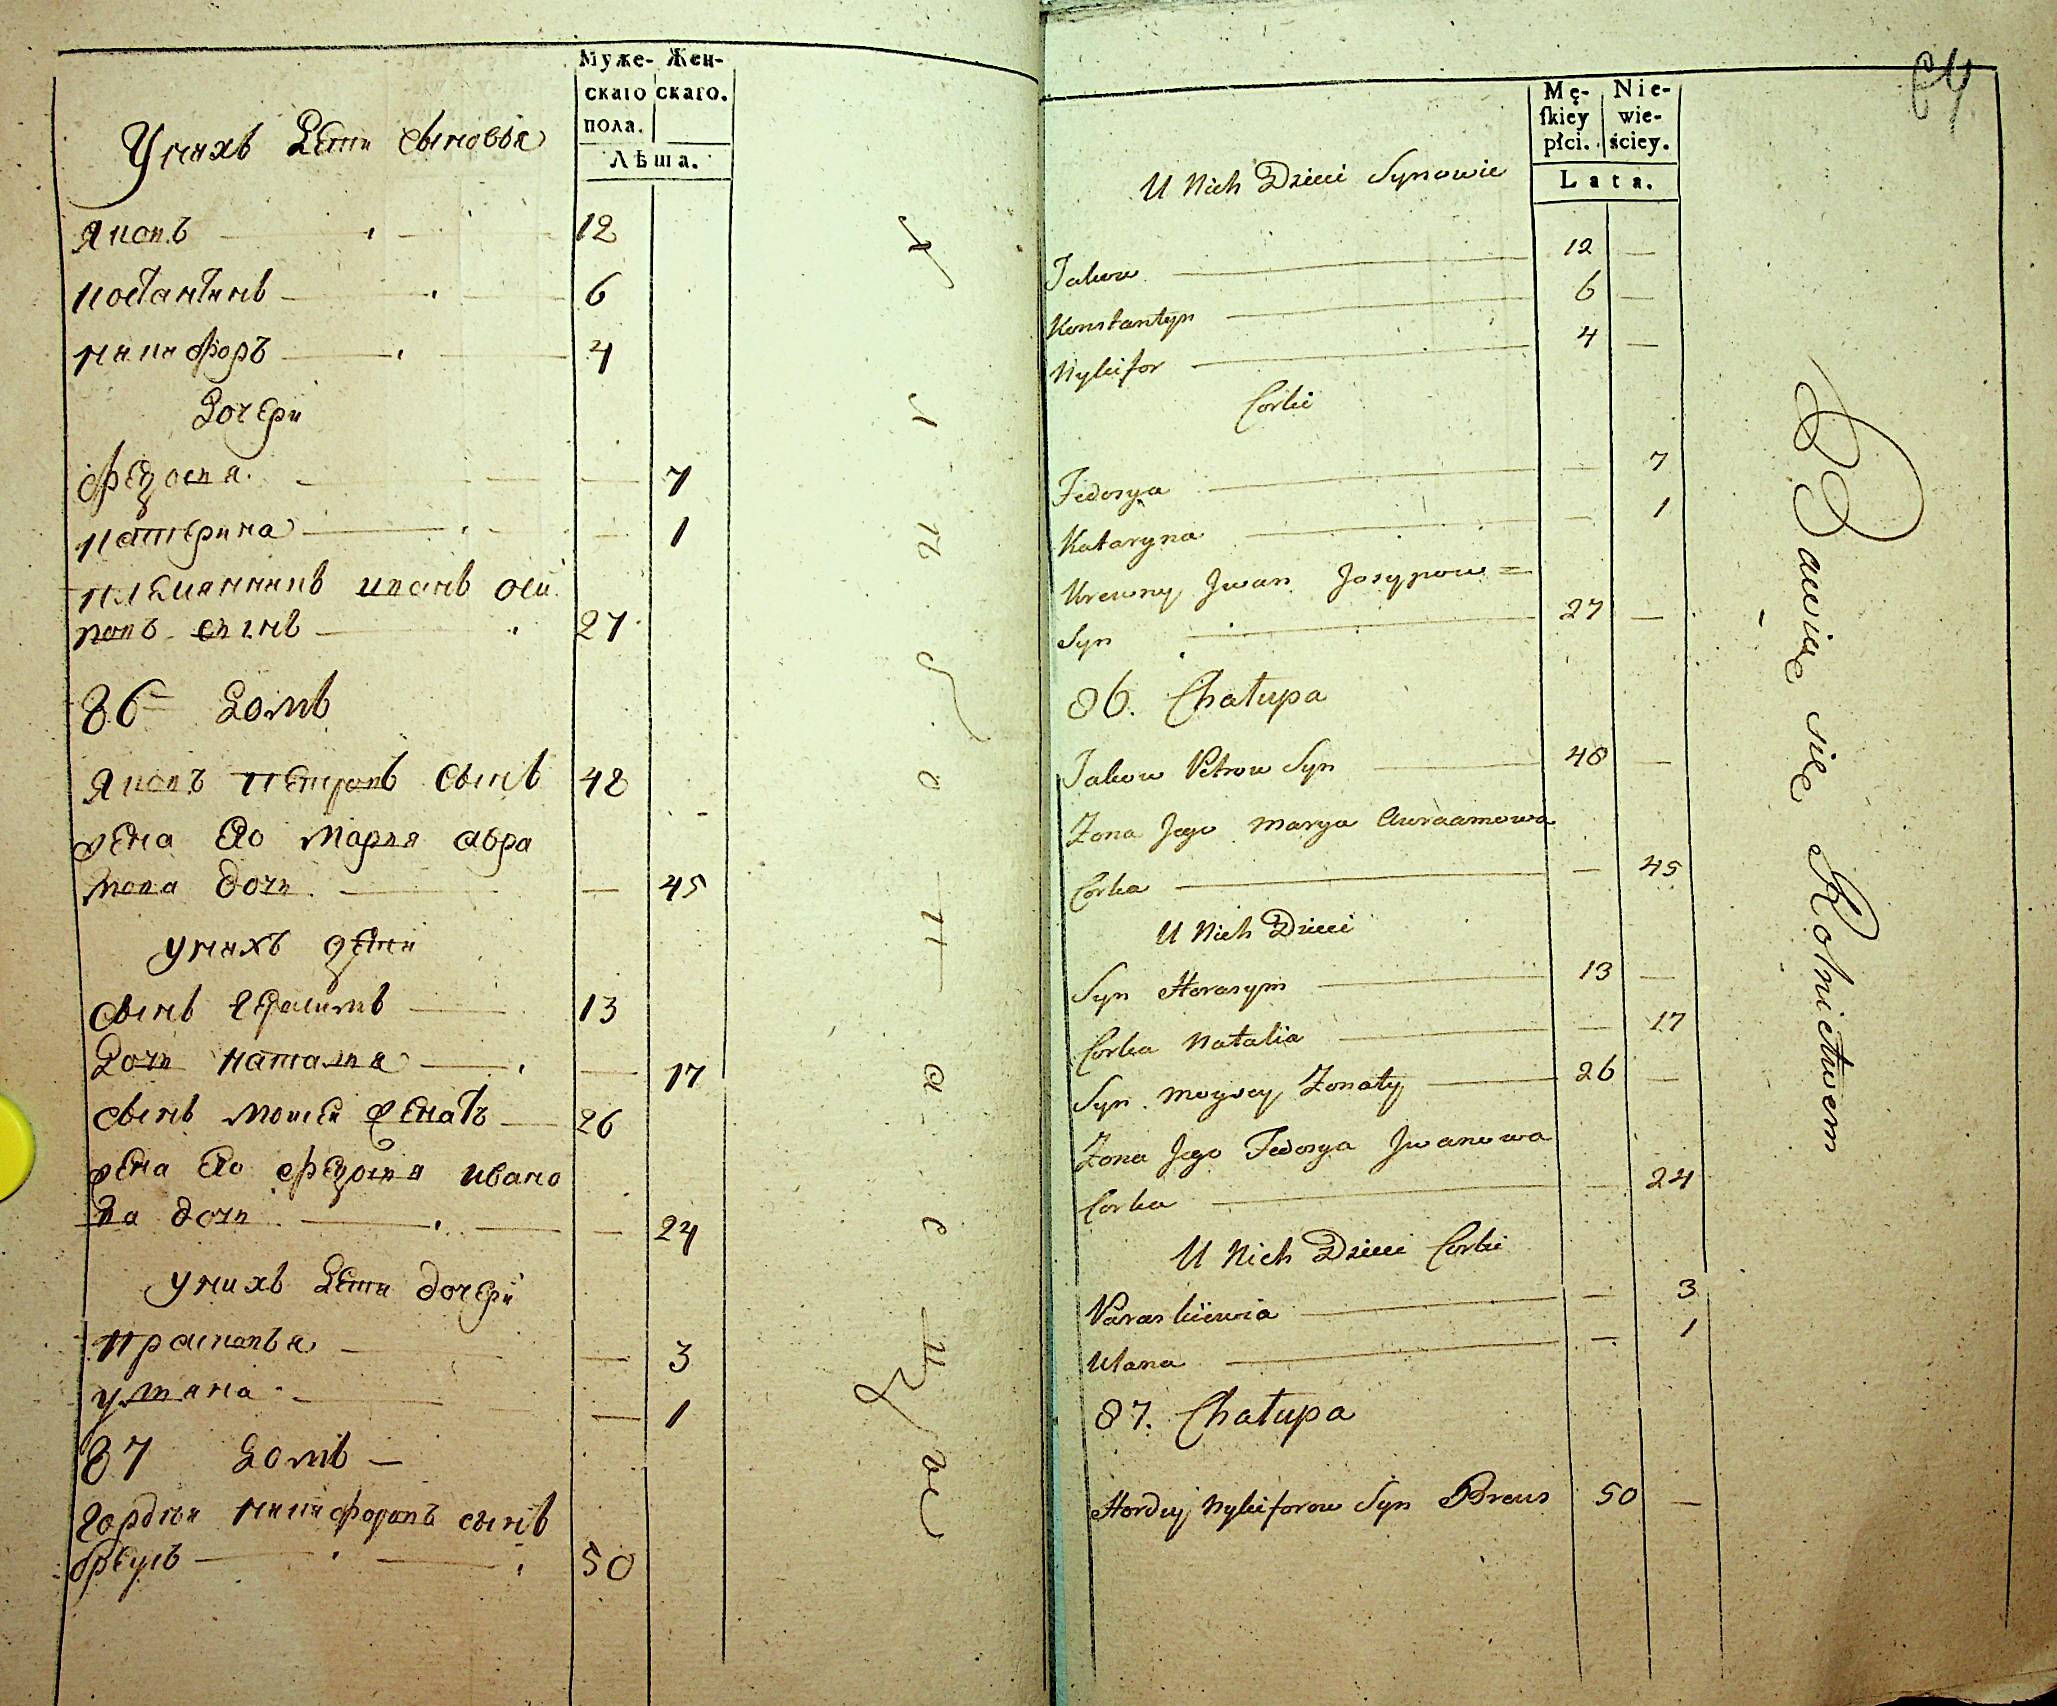 Муже- Жен-
скаго скаго.
пола.
Лѣта.
Унихъ Дети Сыновья
Яковъ 12
Костантинъ 6
Никифоръ 4
Дочери
Федосия 7
Катерина 1
Племянникъ Иванъ Оси
повъ сынъ 27
86 Домъ
Яковъ Петровъ Сынъ 48
жена Его Мария Абра
мова дочь 45
унихъ дети
Сынъ Герасимъ 13
Дочь Наталия 17
Сынъ Мойсей женатъ 26
жена Его Федосия Ивано
ва дочь 24
унихъ Дети дочери
Прасковья 3
Ульяна 1
87 Домъ
Гордей Никифоровъ сынъ
бреусъ 50
64
Mę- Nie-
skiey wie-
płci. ściey.
Lata.
U Nich Dzieci Synowie
Jakow 12
Konstantyn 6
Nykifor 4
Corki
Fedosya 7
Kataryna 1
Krewny Jwan Josypow =
Syn 27
86. Chałupa
Jakow Petrow Syn 48
Zona Jego Marya Awraamowa
Corka 45
U Nich Dzieci
Syn Herasym 13
Corka Natalia 17
Syn Moysey Zonaty 26
Zona Jego Fedosya Jwanowa
Corka 24
U Nich Dzieci Corki
Paraskiewia 3
Ulana 1
87. Chałupa
Hordey Nykiforow Syn Breus 50
Bawiąc się Rolnictwem